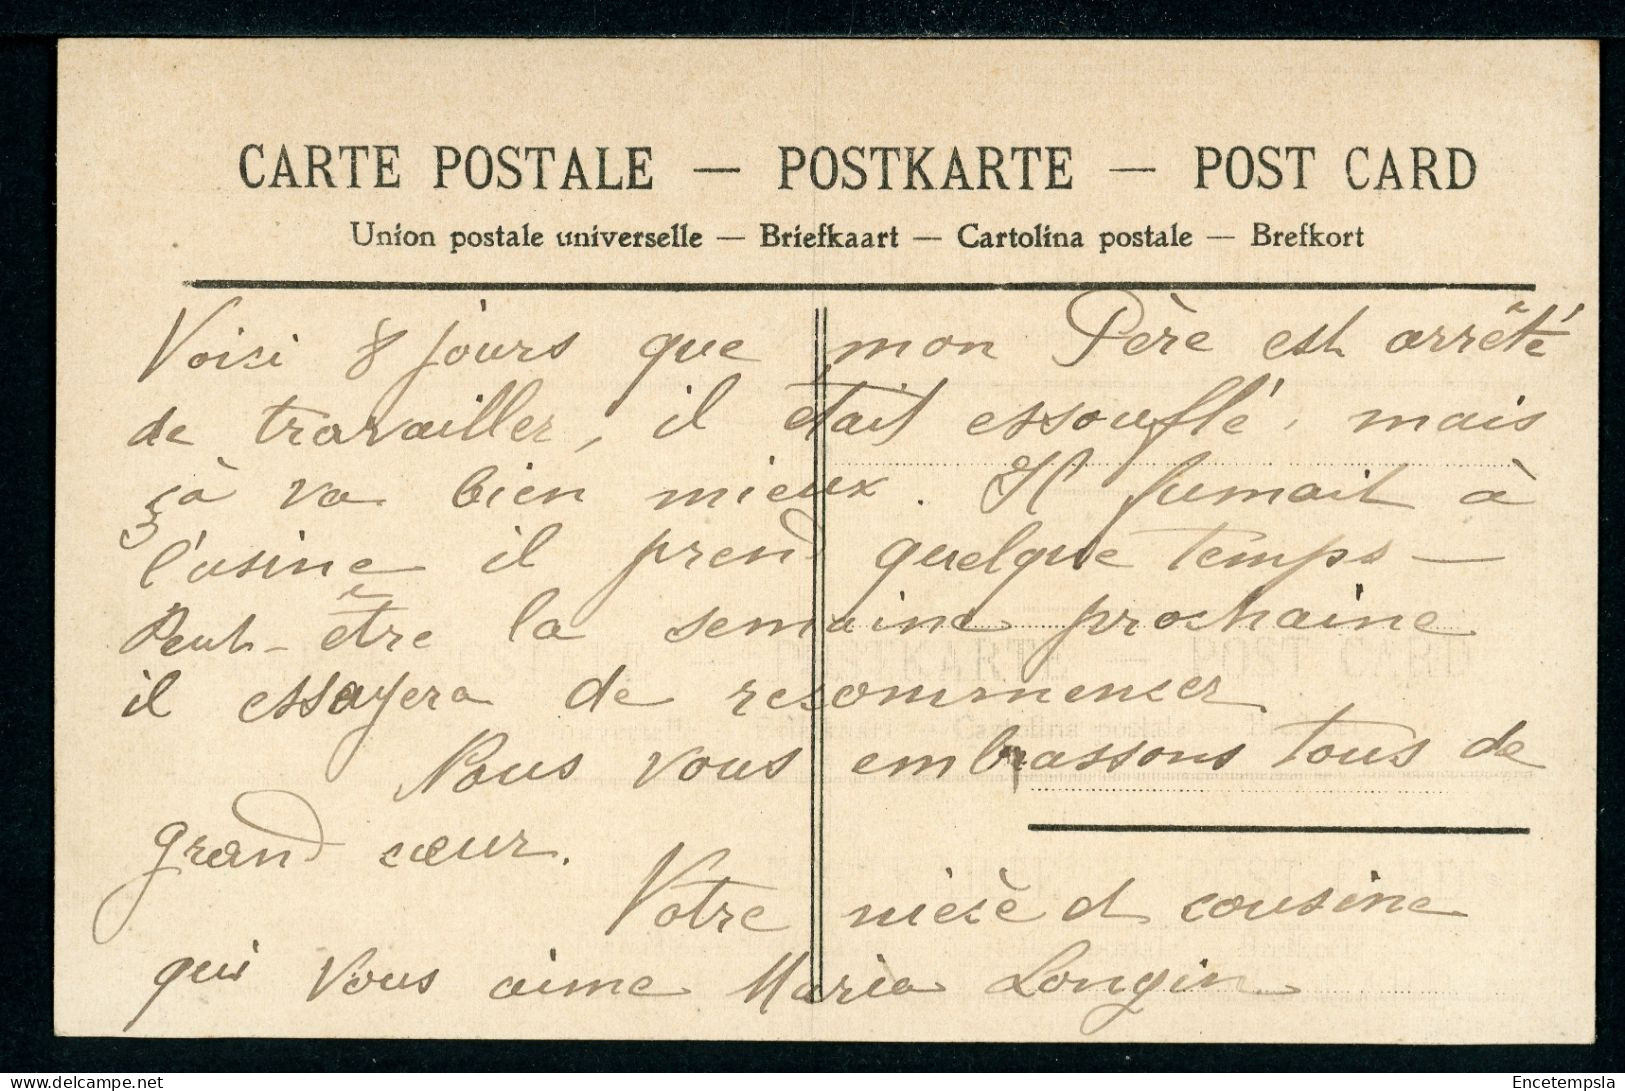 CARTE POSTALE — POSTKARTE — POST CARD
Union postale universelle — Briefkaart — Cartolina postale — Brefkort
Voisi 8 jours que mon Père est arrêté
de travailler, il était essouflé, mais
çà va bien mieux. Il fumait à
l'usine il prend quelque temps —
Peut-être la semaine prochaine
il essayera de recommencer
Nous vous embrassons tous de
grand cœur.
Votre nièce et cousine
qui vous aime Maria Longin
delcampe.net
Encetempsla